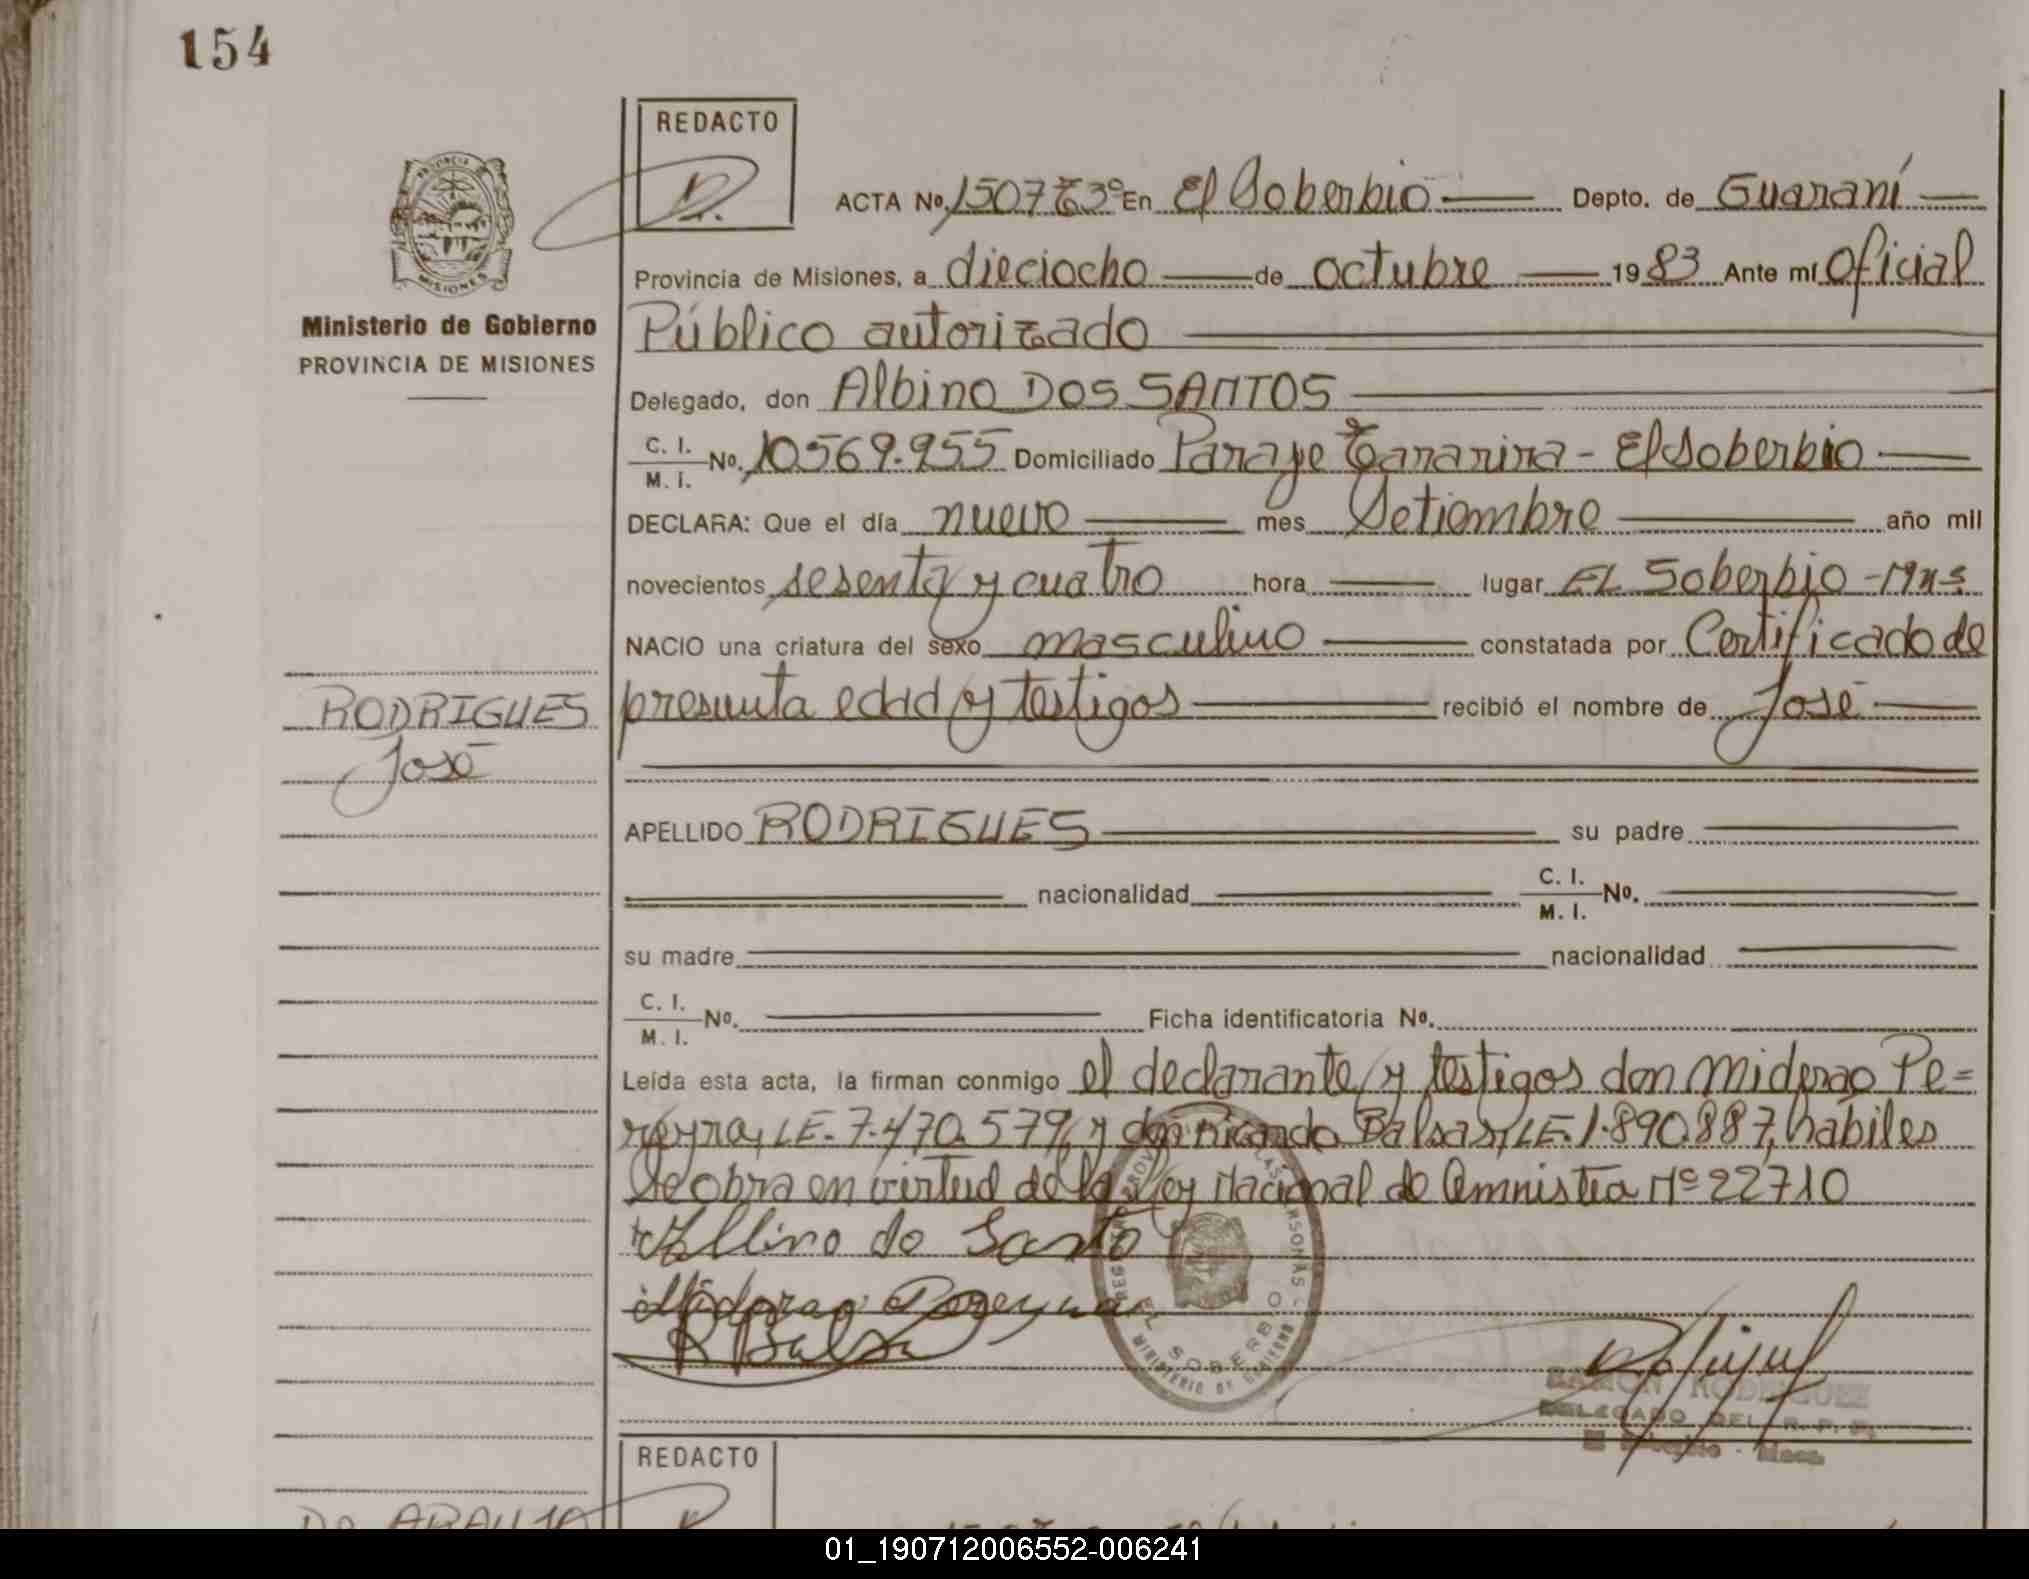 154
REDACTO
ACTA No. 1507 T3º En El Soberbio Depto. de Guaraní
Provincia de Misiones, a dieciocho de octubre 1983 Ante mí Oficial
Público autorizado
Delegado, don Albino DOS SANTOS
C. I. / M. I. No. 10.569.955 Domiciliado Paraje Tararira - El Soberbio
DECLARA: Que el día nueve mes Setiembre año mil
novecientos sesenta y cuatro hora lugar EL Soberbio - Mns.
NACIO una criatura del sexo masculino constatada por Certificado de
presunta edad y testigos recibió el nombre de José
APELLIDO RODRIGUES su padre
nacionalidad C. I. / M. I. No.
su madre nacionalidad
C. I. / M. I. No. Ficha identificatoria No.
Leída esta acta, la firman conmigo el declarante y testigos don Miderao Pe=
reyra, LE. 7.470.579, y don Ricardo Balsas, LE. 1.890.887, habiles
Se obra en virtud de la Ley Nacional de Amnistia Nº 22710
Albino do Santo
Miderao Pereyra
R Balsa
PROVINCIA
MISIONES
Ministerio de Gobierno
PROVINCIA DE MISIONES
RODRIGUES
José
EL SOBERBIO
MINISTERIO DE GOBIERNO
RAMON RODRIGUEZ
DELEGADO DEL R. P. P.
El Soberbio - Mnes.
REDACTO
Do ARAUJO
01_190712006552-006241